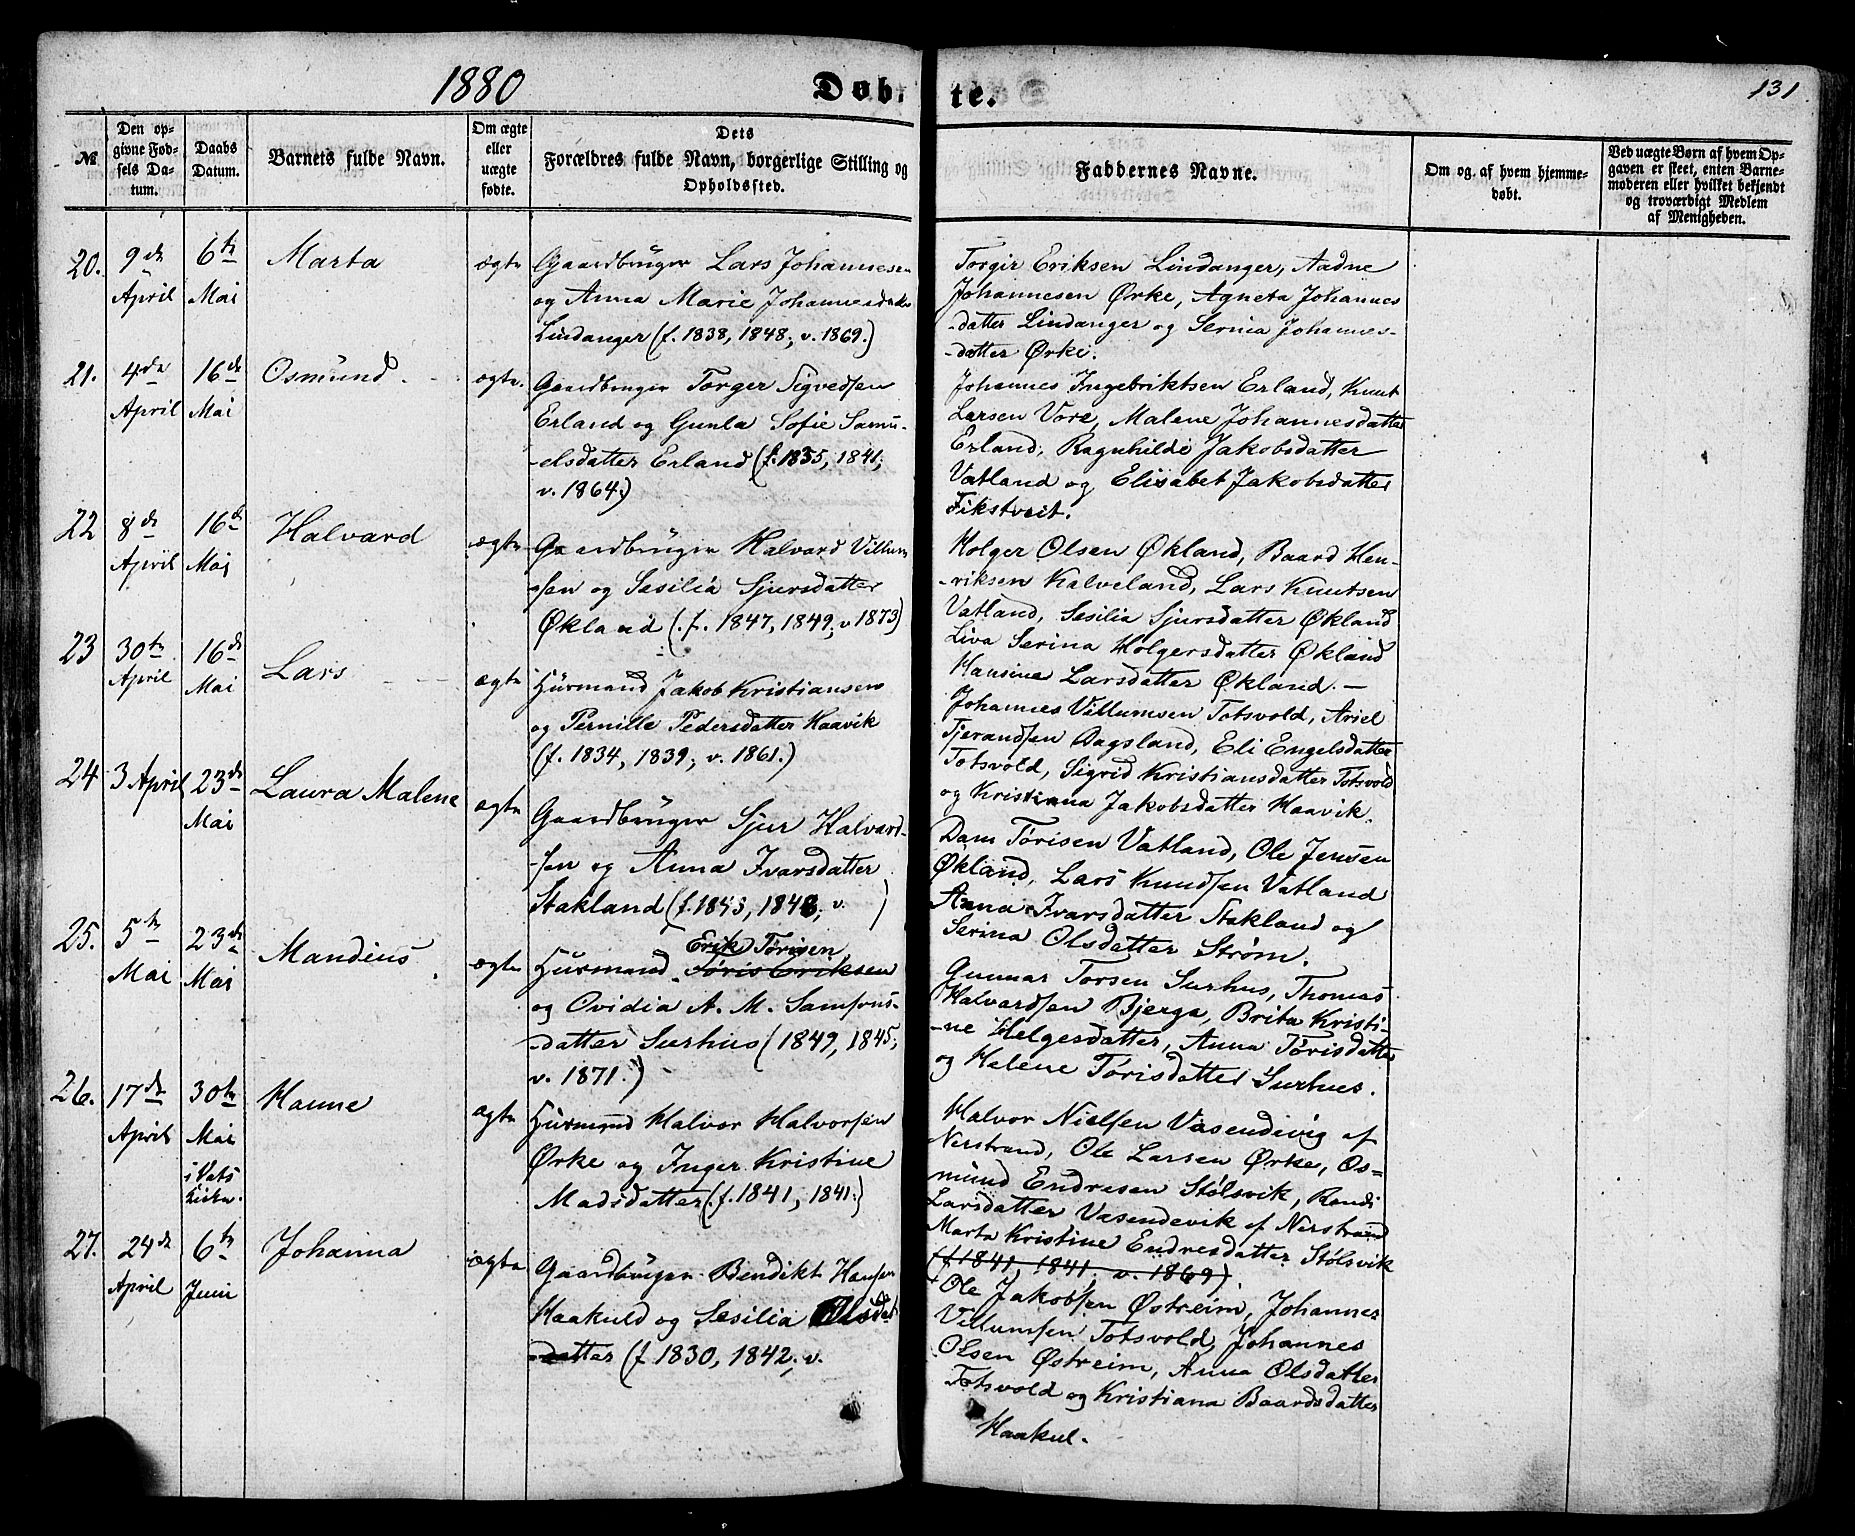 1880
Døb-te.
131
№
Den opgivne Fødsels Datum.
Daabs Datum.
Barnets fulde Navn.
Om ægte eller uægte fødte.
Dets Forældres fulde Navn, borgerlige Stilling og Opholdssted.
Faddernes Navne.
Om og af hvem hjemmedøbt.
Ved uægte Børn af hvem Opgaven er skeet, enten Barnemoderen eller hvilket bekjendt og troværdigt Medlem af Menigheden.
20.
9de April
6te Mai
Marta
ægte
Gaardbruger Lars Johannesen
og Anna Marie Johannesdatter
Lindanger (f. 1838, 1848, v. 1869.)
Torgir Eriksen Lindanger, Aadne
Johannesen Ørke, Agneta Johannes
-datter Lindanger og Serina Johannes-
-datter Ørke.
21.
4de April
16de Mai
Osmund
ægte.
Gaardbruger Torger Sigvedsen
Erland og Gunla Sofie Samu-
-elsdatter Erland (f. 1835, 1841,
v. 1864.)
Johannes Ingebriktsen Erland, Knut
Larsen Vore, Malene Johannesdatter
Erland, Ragnhilde Jakobsdatter
Vatland og Elisabet Jakobsdatter
Fikstveit.
22
8de April
16de Mai
Halvard
ægte
Gaardbruger Halvard Villum
-sen og Sesilia Sjursdatter
Økland (f. 1847, 1849, v 1873)
Holger Olsen Økland, Baard Hen-
-riksen Kalveland, Lars Knutsen
Vatland, Sesilia Sjursdatter Økland
Liva Serina Holgersdatter Økland
Hansine Larsdatter Økland. —
23
30te April
16de Mai
Lars
ægte
Husmand Jakob Kristiansen
og Pernille Pedersdatter Haavik
(f. 1834, 1839, v. 1861.)
Johannes Villumsen Totsvold, Ariel
Tjerandsen Dagsland, Eli Engelsdatter
Totsvold, Sigrid Kristiansdatter Totsvold
og Kristiana Jakobsdatter Haavik.
24
3 April
23de Mai
Laura Malene
ægte
Gaardbruger Sjur Halvard-
-sen og Anna Ivarsdatter
Stakland (f. 1843, 1848, v. )
Dam Tørisen Vatland, Ole Jensen
Økland, Lars Knudsen Vatland
Anna Ivarsdatter Stakland og
Serina Olsdatter Strøm.
25.
5te Mai
23de Mai
Mandius
ægte
Erik Tørisen,
Husmand Tøris Eriksen
og Ovidia A. M. Samsons-
-datter Surhus (1849, 1845,
v. 1871.)
Gunnar Torsen Surhus, Thomas
Halvardsen Bjerga, Brita Kristi-
-ne Helgesdatter, Anna Tørisdatter
og Helene Tørisdatter Surhus.
26.
17de April
30te Mai
i Vats
Kirke.
Hanne
ægte
Husmand Halvor Halvorsen
Ørke og Inger Kristine
Madsdatter (f. 1841, 1841.)
Halvor Nielsen Vasendivig af
Nerstrand, Ole Larsen Ørke, Os-
mund Endresen Stølsvik, Randi
Larsdatter Vasendevik af Nerstrand
Marta Kristine Endresdatter Stølsvik
(f. 1841, 1841, v. 1869).
27.
24de April
6te Juni
Johanna
ægte
Gaardbruger Bendikt Hansen
Haakuld og Sesilia Olsdat
-datter (f. 1830, 1842, v.
Ole Jakobsen Østreim, Johannes
Villumsen Totsvold, Johannes
Olsen Østreim, Anna Olsdatter
Totsvold og Kristiana Baardsdatter
Haakul.